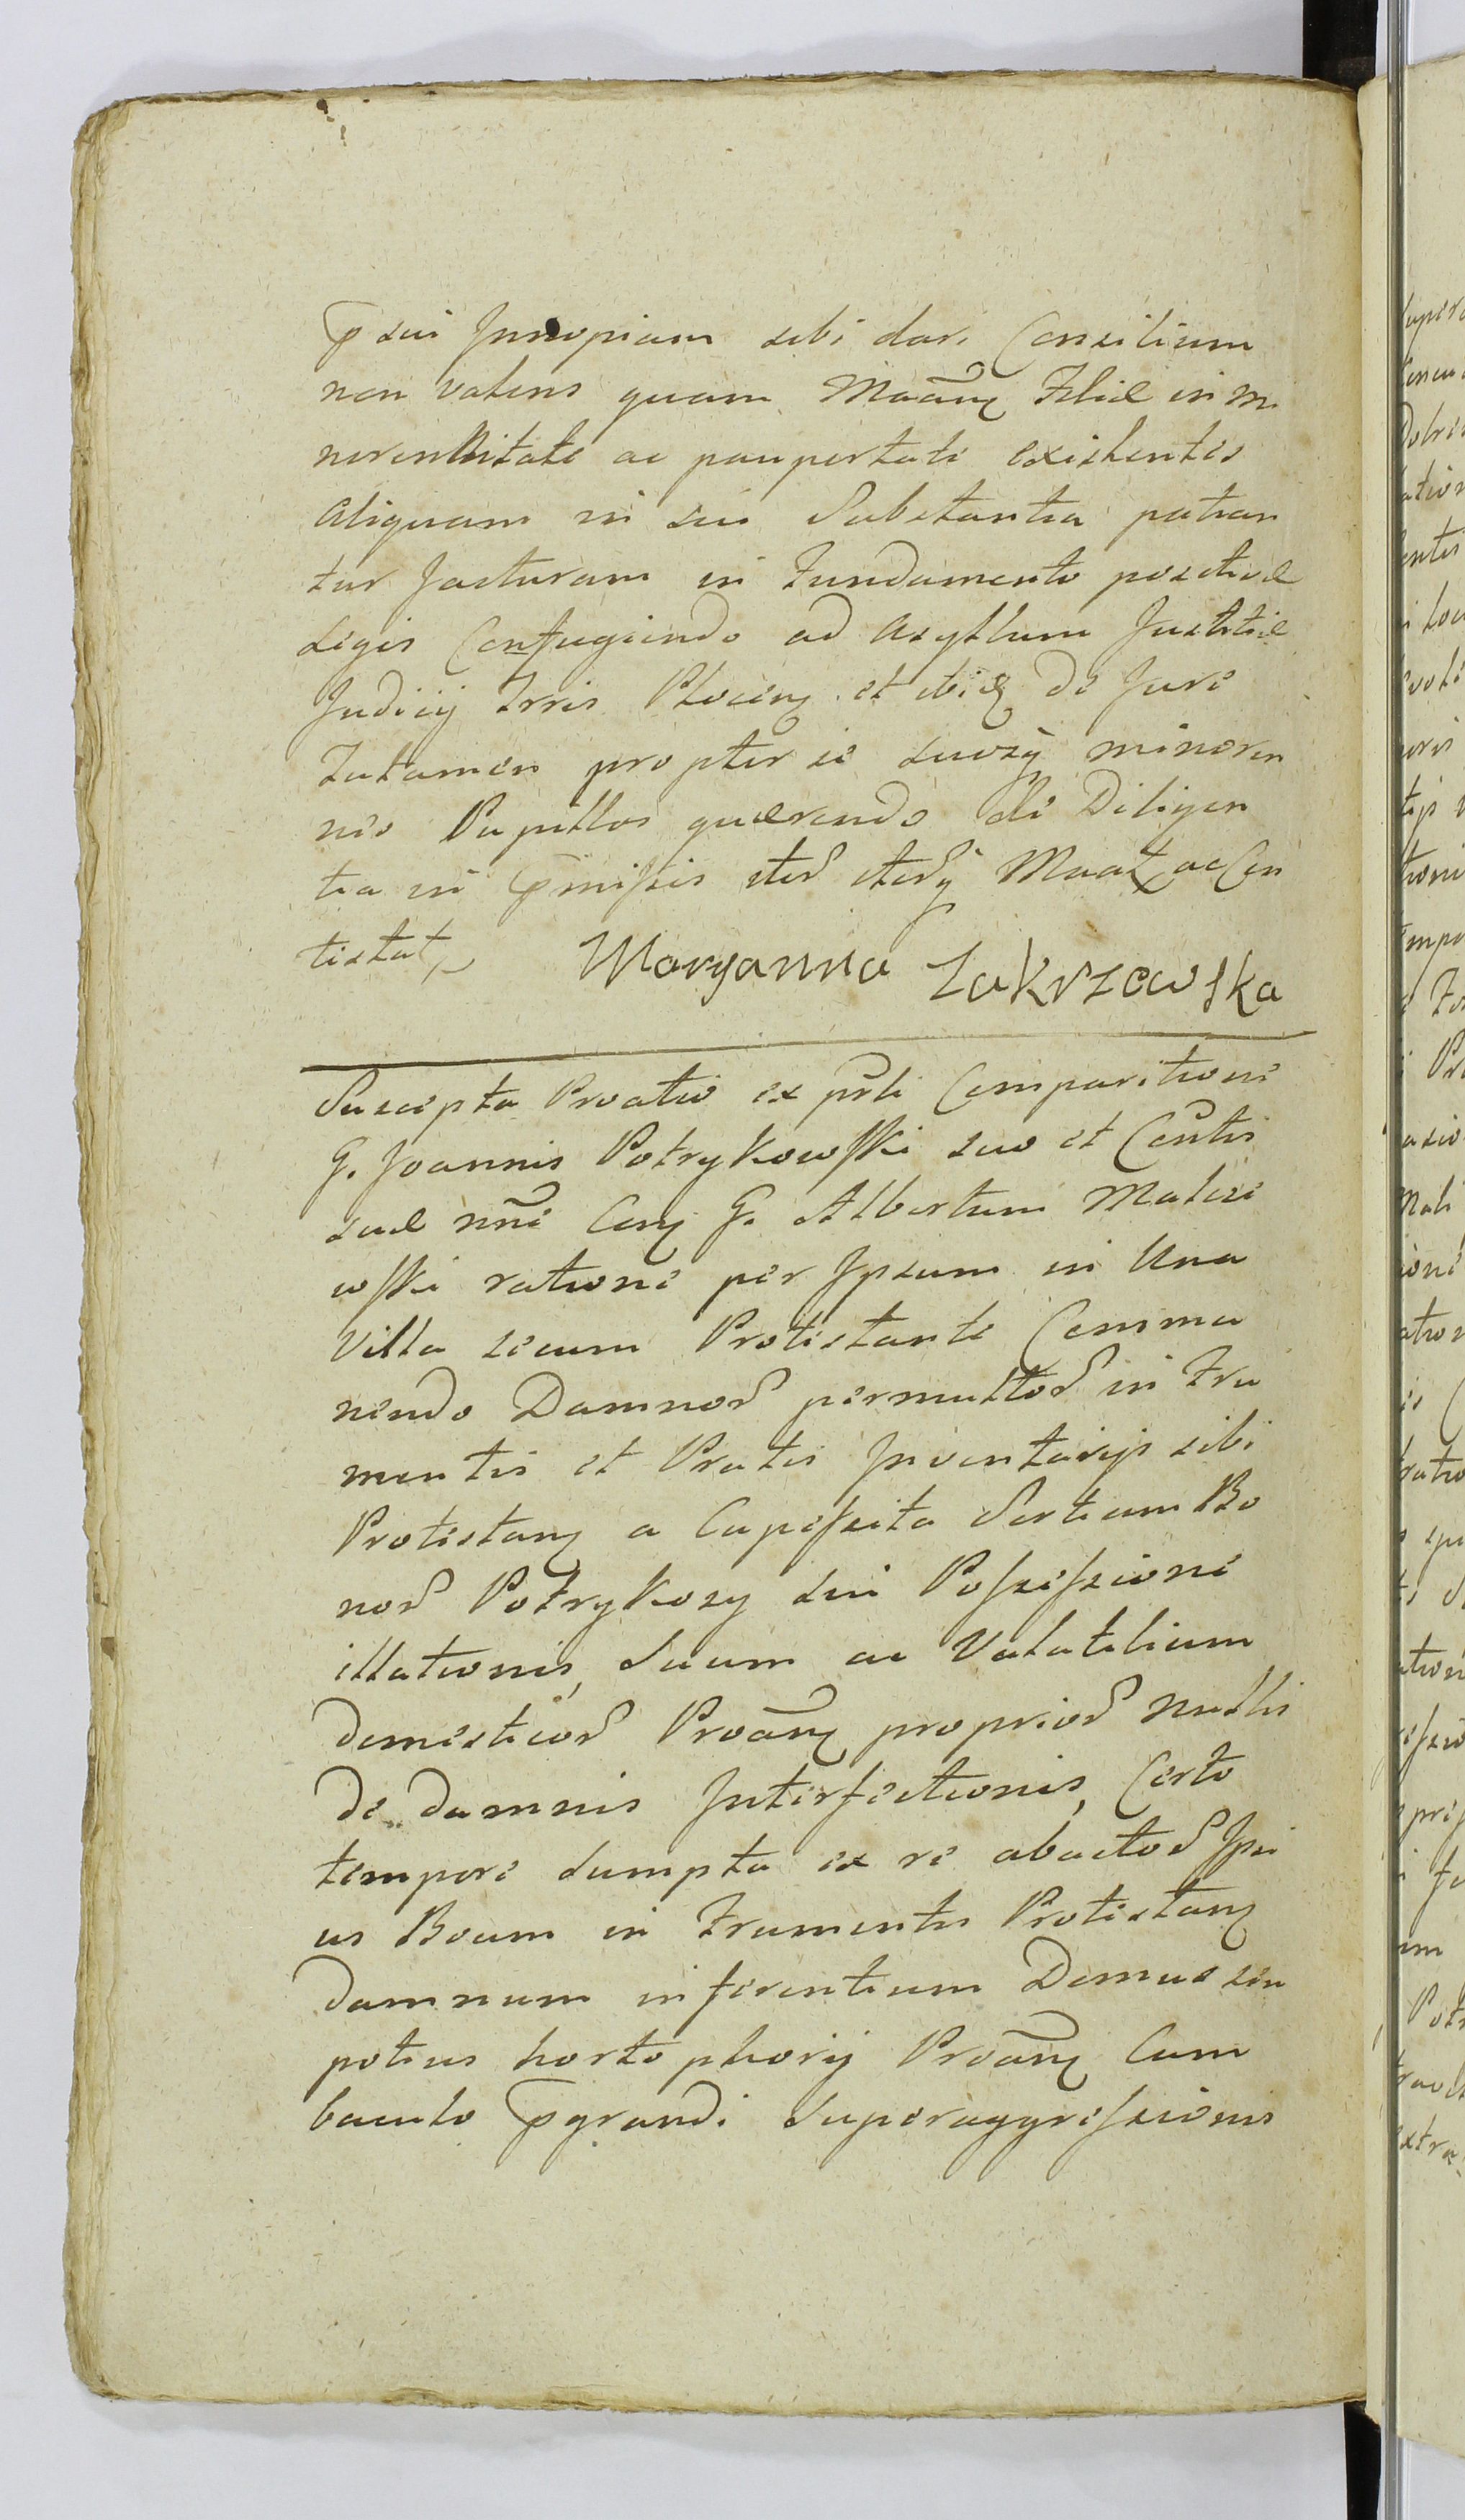 p sui Jnnopiam sibi dari Consilium
non valens quam Maãnꝫ Filiæ in mi
norennitate ac paupertate existentes
aliquam in sui Substantia patian
tur Jacturam in Fundamento positivæ
Legis Confugiendo ad Asyllum Justitiæ
Judicij Trris Plocenꝫ et ibiqꝫ de Jure
Tutamen propter se suosq̃ minoren
nes Pupillos quærendo de Diligen
tia in pmissis ited itedq̃ Maat ac Con
testat,
Maryanna Zakrzewska
Suscepta Proatio ex p̃sti Comparitione
G. Joannis Potrykowski suo et Consti
suæ nñe Conꝫ G. Albertum Malesze
wski ratione per Ipsum in Una
Villa secum Protestante Commu
nendo Damnoꝝ permultoꝝ in Fru
mentis et Pratis Jnventarijs sibi
Protestanꝫ a Capessita Sortium Bo
noꝝ Potrykozy sui Possessione
illationis, Suum ac Volatilium
domesticoꝝ Proãnꝫ proprioꝝ nullis
de damnis Jnterfectionis, Certo
tempore sumpta ex re abactoꝝ Jpsi
us Boum in Frumentis Protestanꝫ
damnum inferentium Domus seu
potius horto phorij Proãnꝫ Cum
baculo pgrandi Superaggressionis